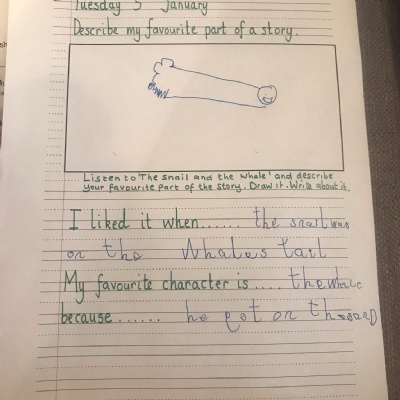 Tuesday 5 January
Describe my favourite part of a story.
Listen to 'The snail and the whale' and describe
your favourite part of the story. Draw it. Write about it.
I liked it when...... the snail was
on the whales tail
My favourite character is .... the whale
because ...... he got on the sand